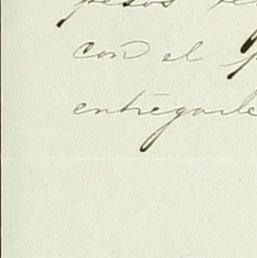 pesos
con el
entregarle